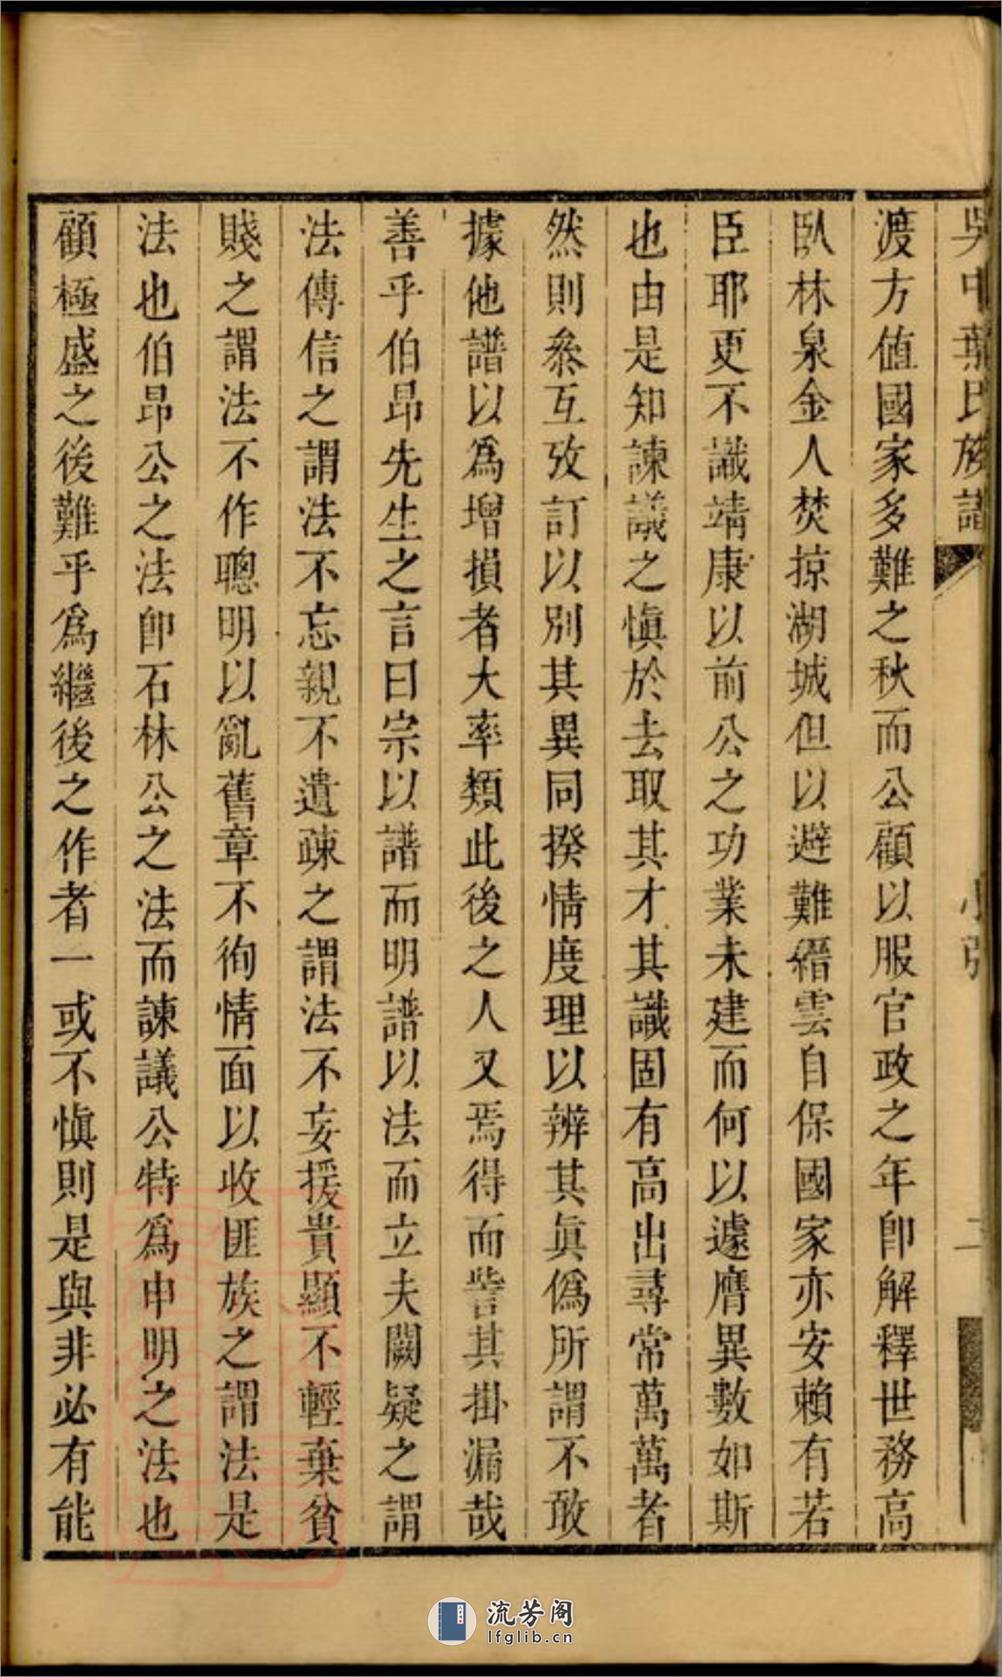 吳中葉氏族譜
小引
二
渡方值國家多難之秋而公顧以服官政之年卽解釋世務高
臥林泉金人焚掠湖城但以避難縉雲自保國家亦安賴有若
臣耶更不識靖康以前公之功業未建而何以遽膺異數如斯
也由是知諫議之愼於去取其才其識固有高出尋常萬萬者
然則叅互攷訂以別其異同揆情度理以辨其眞僞所謂不敢
據他譜以爲增損者大率類此後之人又焉得而訾其掛漏哉
善乎伯昂先生之言曰宗以譜而明譜以法而立夫闕疑之謂
法傳信之謂法不忘親不遺疎之謂法不妄援貴顯不輕棄貧
賤之謂法不作聰明以亂舊章不徇情面以收匪族之謂法是
法也伯昂公之法卽石林公之法而諫議公特爲申明之法也
顧極盛之後難乎爲繼後之作者一或不愼則是與非必有能
流芳阁
lfglib.cn